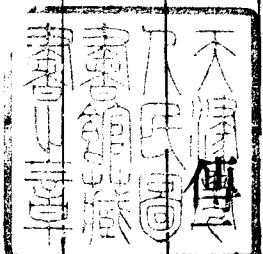 天津市
人民圖
書館藏
書之章
傳